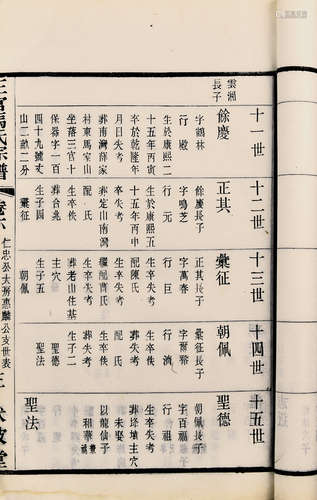 十一世
十二世
十三世
十四世
十五世
雲湘長子
餘慶
字鶴林
行殿
生於康熙二
十五年丙寅
卒於乾隆年
月日失考
葬南灣薛家
村東馬家山
坐落三官十
保器字一百
四十九號丈
山二畝二分
正其
餘慶長子
字鳴芝
行元
生於康熙五
十五年丙申
卒失考
葬茔山南灣
配氏
生卒佚
葬合兆
生子四
彙征
正其長子
字萬春
行巨
生卒失考
配陳氏
生卒失考
繼配曹氏
生卒佚
葬老山住基
主穴
生子五
朝佩
朝佩
彙征長子
字爾裕
行濟
生卒佚
葬失考
配氏
生卒佚
葬失考
生子二
聖德
聖法
聖德
朝佩長子
字百福
行
生卒失考
葬埄墳主穴
未娶
以龍仙子
和華兼
聖法
王官馬氏宗譜
卷六
仁忠公大房惠麟公支世表
三